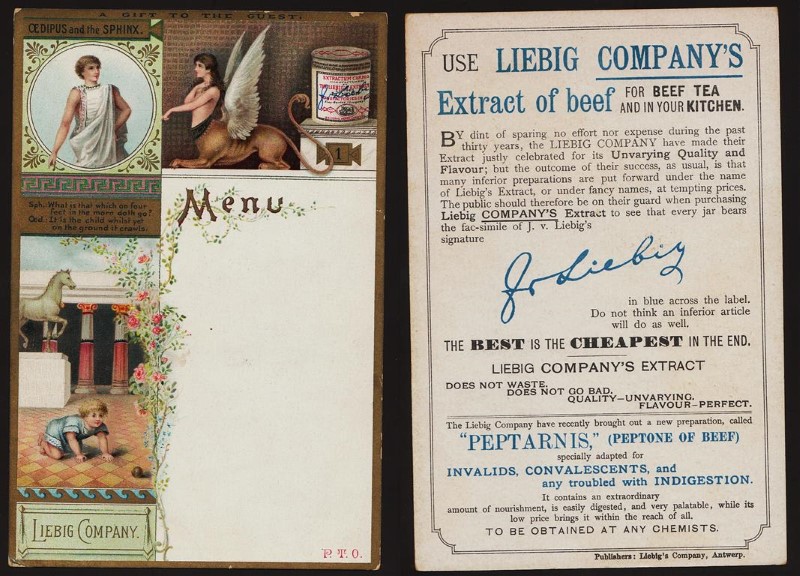 A GIFT TO THE GUEST.
ŒDIPUS and the SPHINX.
EXTRACTUM CARNIS
1
Sph. What is that which on four
feet in the morn doth go?
Œd.: It is the child whilst yet
on the ground it crawls.
Menu
LIEBIG COMPANY.
P. T. O.
USE LIEBIG COMPANY'S
Extract of beef FOR BEEF TEA
AND IN YOUR KITCHEN.
BY dint of sparing no effort nor expense during the past
thirty years, the LIEBIG COMPANY have made their
Extract justly celebrated for its Unvarying Quality and
Flavour; but the outcome of their success, as usual, is that
many inferior preparations are put forward under the name
of Liebig's Extract, or under fancy names, at tempting prices.
The public should therefore be on their guard when purchasing
Liebig COMPANY'S Extract to see that every jar bears
the fac-simile of J. v. Liebig's
signature
J v Liebig
in blue across the label.
Do not think an inferior article
will do as well.
THE BEST IS THE CHEAPEST IN THE END.
LIEBIG COMPANY'S EXTRACT
DOES NOT WASTE.
DOES NOT GO BAD.
QUALITY—UNVARYING.
FLAVOUR—PERFECT.
The Liebig Company have recently brought out a new preparation, called
"PEPTARNIS," (PEPTONE OF BEEF)
specially adapted for
INVALIDS, CONVALESCENTS, and
any troubled with INDIGESTION.
It contains an extraordinary
amount of nourishment, is easily digested, and very palatable, while its
low price brings it within the reach of all.
TO BE OBTAINED AT ANY CHEMISTS.
Publishers: Liebig's Company, Antwerp.